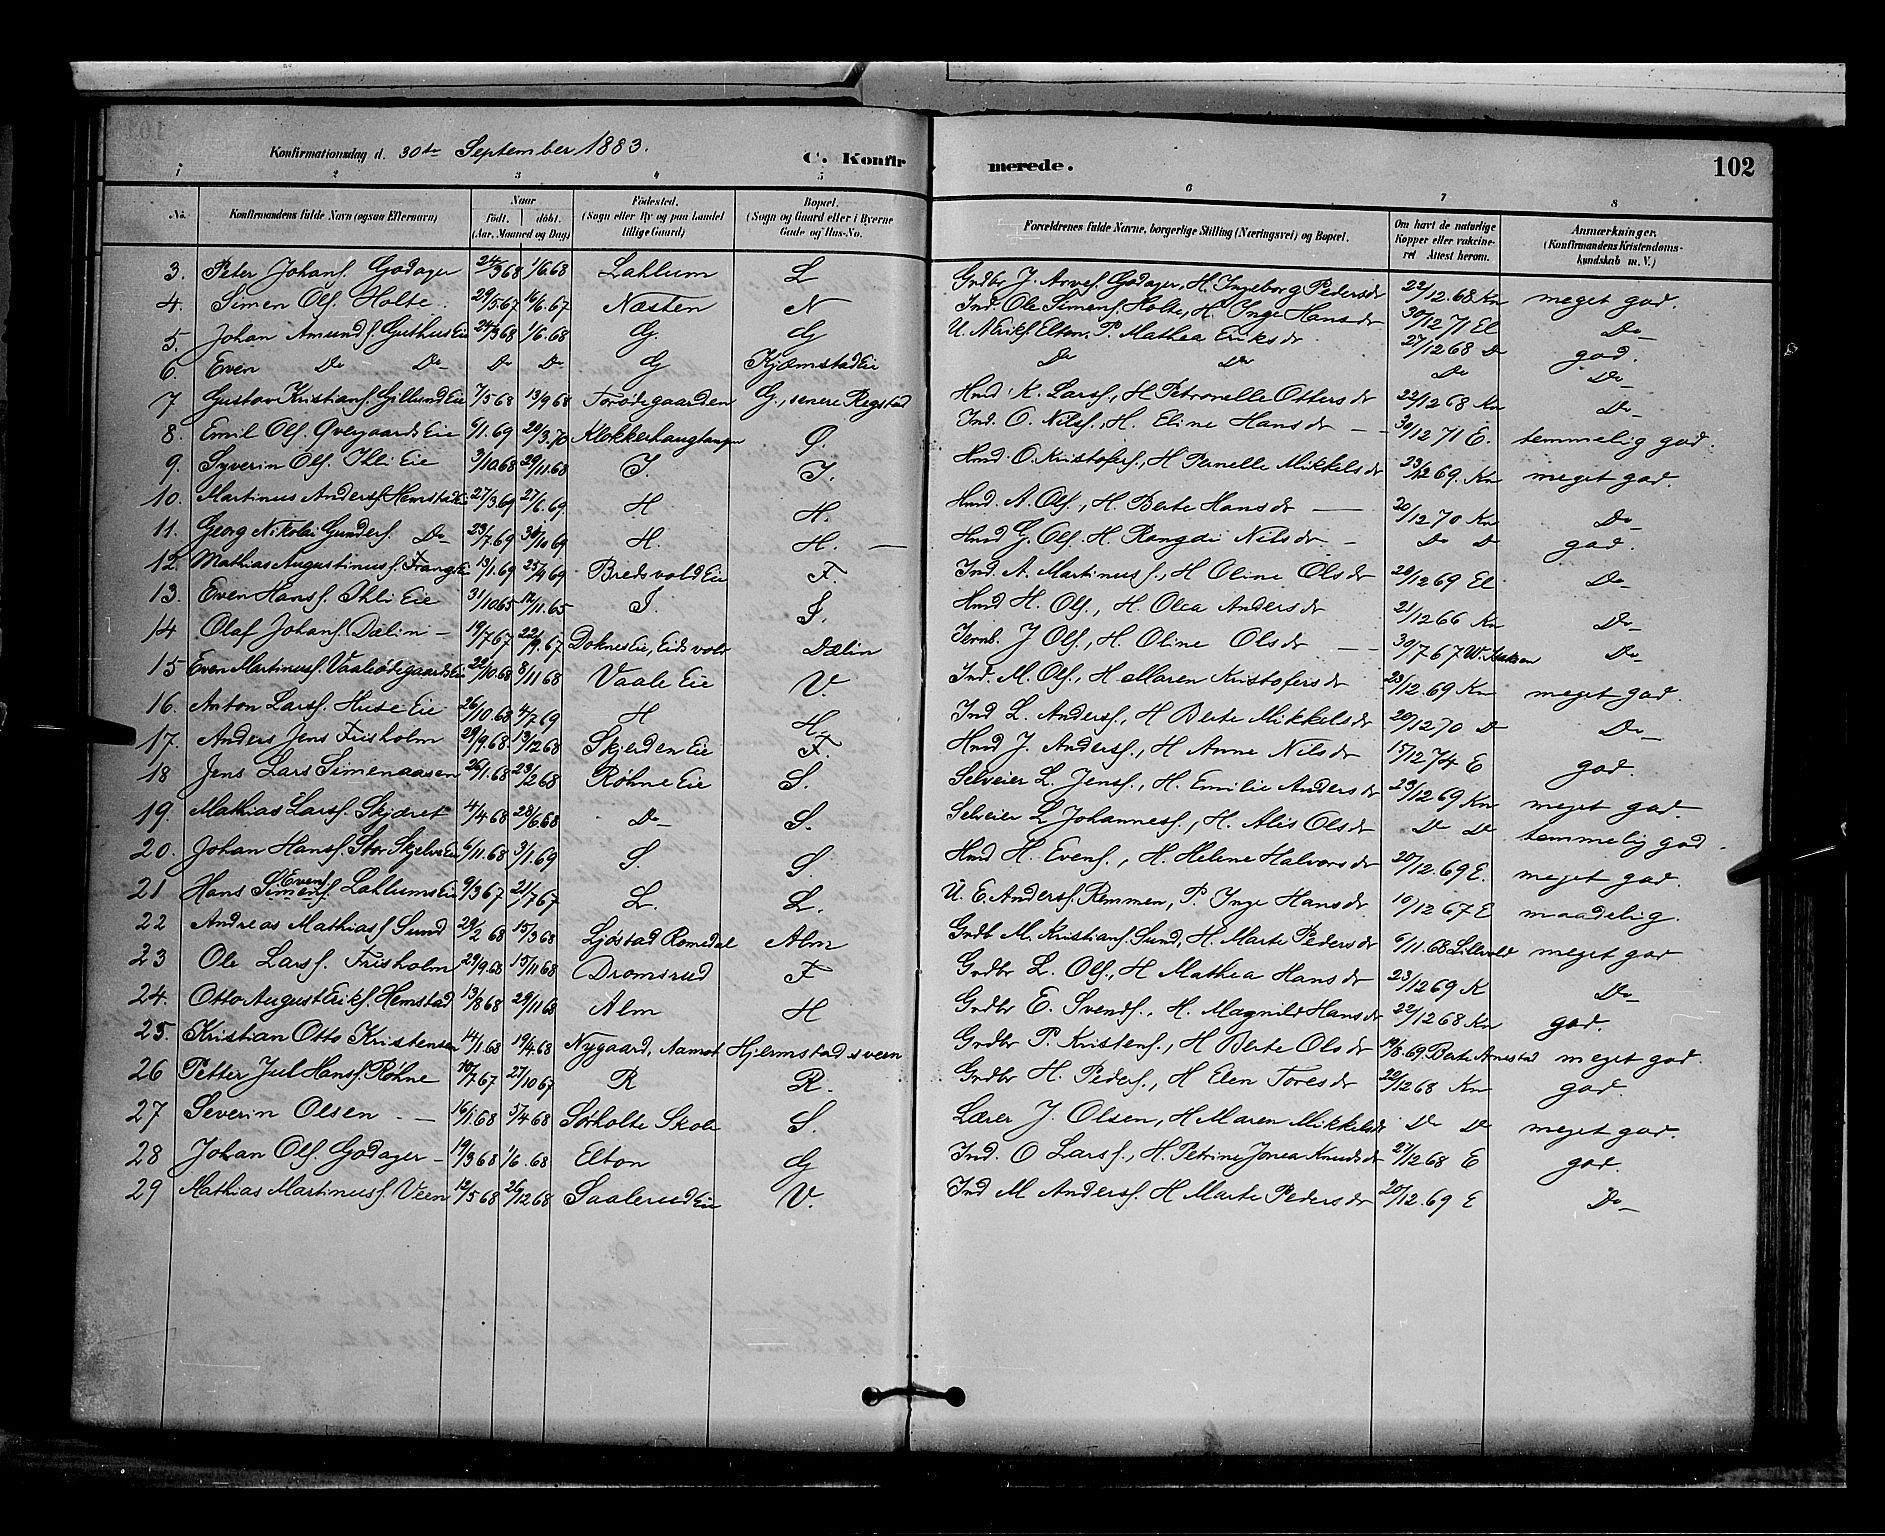 Konfirmationsdag d. 30te September 1883.
C. Konfirmerede.
102
1 2 3 4 5 6 7 8
No. Konfirmandens fulde Navn (ogsaa Efternavn) Naar födt. döbt. (Aar, Maaned og Dag) Födested. (Sogn eller By og paa Landet tillige Gaard) Bopæl. (Sogn og Gaard eller i Byerne Gade og Hus-No. Forældrenes fulde Navne, borgerlige Stilling (Næringsvei) og Bopæl. Om havt de naturlige Kopper eller vakcineret Attest herom. Anmærkninger. (Konfirmandens Kristendomskundskab m. V.)
3. Peter Johansf. Godager 24/3 68 1/6.68 Lahlum L Grdbr J. Arvesf. Godager, H. Ingeborg Pedersdr 22/12.68 Kn meget god.
4. Simen Olsf. Holte. 29/5.67 16/6.67 Næsten N Ind. Ole Simensf. Holte, H. Inge Hansdr 30/12 71 El Do
5. Johan Amundsf. Gusthus Eie 24/3 68 1/6.68 G. G U. A Eriksf. Elton, P. Mathea Eriksdr 27/12 68 D god.
6. Even Do Do Do Do G Kjæmstad Eie Do Do Do Do
7 Gustav Kristiansf. Gillund Eie 7/5 68 13/9 68 Torödegaarden G., senere Regstad Hmd K. Larsf., H Petronelle Ottersdr 22/12 68 Kn Do
8. Emil Olsf. Øvergaards Eie 6/1.69 20/3.70 Klokkerhaugtangen Ø. Ind. O. Nilsf., H. Eline Hansdr 30/12 71 E. temmelig god.
9. Syverin Olsf. Ihli Eie 3/10 68 29/11.68 I. I. Hmd O. Kristofersf., H Pernelle Mikkelsdr 23/12 69. Kn meget god.
10. Martinus Andersf. Hemstad Eie 27/3.69 27/6.69 H. H. Hmd A. Olsf., H. Berte Hansdr 20/12 70 Kn Do
11. Georg Nikolai Gundersf. Do 23/7.69 30/10 69 H. H. Hmd G. Olsf. H. Rangdi Nilsdr Do D god.
12. Mathias Augustinusf. Frang Eie 13/1.69 25/4 69 Bredsvold Eie F. Ind. A. Martinusf., H Oline Olsdr 20/12 69 El Do
13. Even Hansf. Ihli Eie 31/10 65 12/11.65 I. I. Hmd H. Olsf., H. Olea Andersdr 21/12 66 Kn Do
14 Olaf Johansf. Dælin 19/7 67 22/9.67 Doknes Eie, Eidsvold Dælin Jernb. J Olsf., H. Oline Olsdr 30/7 67 Do
15 Even Martinusf. Vaalsödegaards Eie 22/10.68 8/11 68 Vaale Eie V Ind. M. Olsf., H Maren Kristofersdr 23/12.69 Kn meget god.
16. Anton Larsf. Huse Eie 26/10.68 4/7 69 H H. Ind L. Andersf., H Berte Mikkelsdr 20/12 70 D Do
17. Anders Jens Frisholm 29/9.68. 13/12 68 Skjerden Eie F. Hmd J. Andersf., H Anne Nilsdr 15/12 74 E god.
18 Jens Lars Simenaasen 26/1.68 23/2 68 Røhne Eie S. Selveier L. Jensf., H. Emilie Andersdr 23/12 69 Kn meget god.
19. Mathias Larsf. Skjæret 4/4 68 28/6.68 Do S. Selveier L Johannesf., H. Alis Olsdr Do Do temmelig god
20. Johan Hansf. Stor Skjelve Eie 6/11.68 3/1.69 S. S. Hmd H. Evensf., H. Helene Halvorsdr 20/12.69 E. meget god.
21 Hans Simensf. Evensf. Lahlums Eie 9/3 67 21/7 67 L. L. U. E. Andersf. Remmen, P. Inge Hansdr 19/12 67 E maadelig.
22 Andreas Mathiasf Sund 29/2 68 15/3 68 Ljöstad Romedal Alm Grdb M. Kristiansf. Sund, H. Marte Pedersdr 6/11.68 Lillevold meget god
23 Ole Larsf. Frisholm 29/9.68 15/11 68 Dromsrud F Grdbr L. Olsf., H Mathea Hansdr 23/12 69 K Do
24. Otto August Eriksf. Hemstad 13/8 68 29/11 68 Alm H Grdbr E. Svendsf., H. Magnild Hansdr 22/12 68 Kn god.
25. Kristian Otto Kristensen 14/1.68 19/4.68 Nygaard, Aamot Hjelmstadsveen Grdbr P. Kristensf., H Berte Olsdr 14/8.69. Berte Arnestad meget god.
26 Petter Jul Hansf. Röhne 10/7 67 27/10 67 R R. Grdbr H. Pedersf., H Elen Toresdr 22/12 68 Kn god.
27 Severin Olsen 16/1.68 5/4 68 Sörholte Skole S. Lærer J. Olsen, H Maren Mikkelsdr Do Do meget god.
28 Johan Olsf Godager 19/3 68 1/6.68 Elton G Ind. O Larsf., H. Petrine Jonea Knudsdr 27/12 68 E god.
29 Mathias Martinusf. Veen 12/5 68 26/12 68 Saalerud Eie V. Ind M Andersf. H Marte Pedersdr 20/12.69 E Do